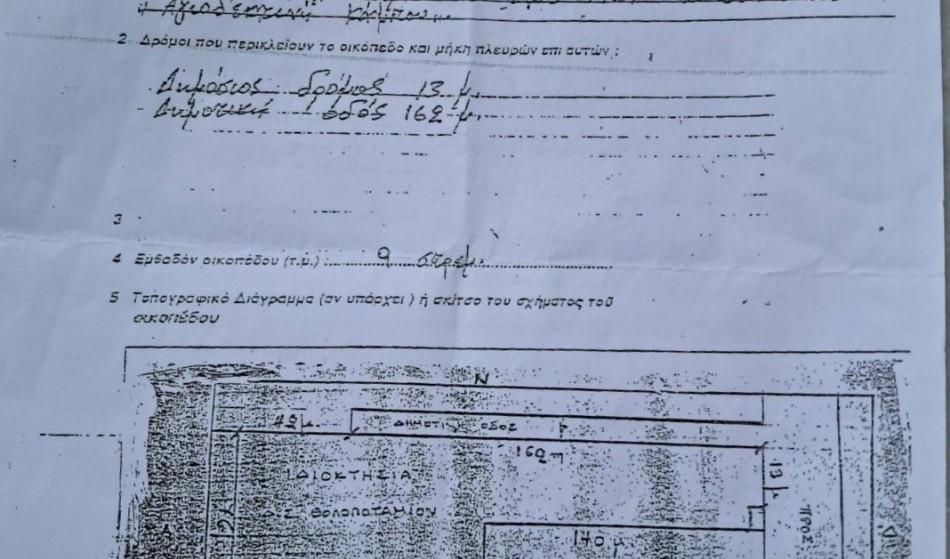 Αγιοδεκτινή Κάμπου..
2 Δρόμοι που περικλείουν το οικόπεδο και μήκη πλευρών επι αυτών :
Δημόσιος δρόμος 13 μ.
Δημοτική οδός 162 μ.
3
4 Εμβαδόν οικοπέδου (τ.μ.) : 9 στρέμ.
5 Τοπογραφικό Διάγραμμα (αν υπάρχει) ή σκίτσο του σχήματος τού
οικοπέδου
N
42 μ. ΔΗΜΟΤΙ ΟΔΟΣ
162 μ
ΙΔΙΟΚΤΗΣΙΑ
13 μ
ΘΟΛΟΠΟΤΑΜΙΟΥ
ΠΡΟΣ
140 μ.